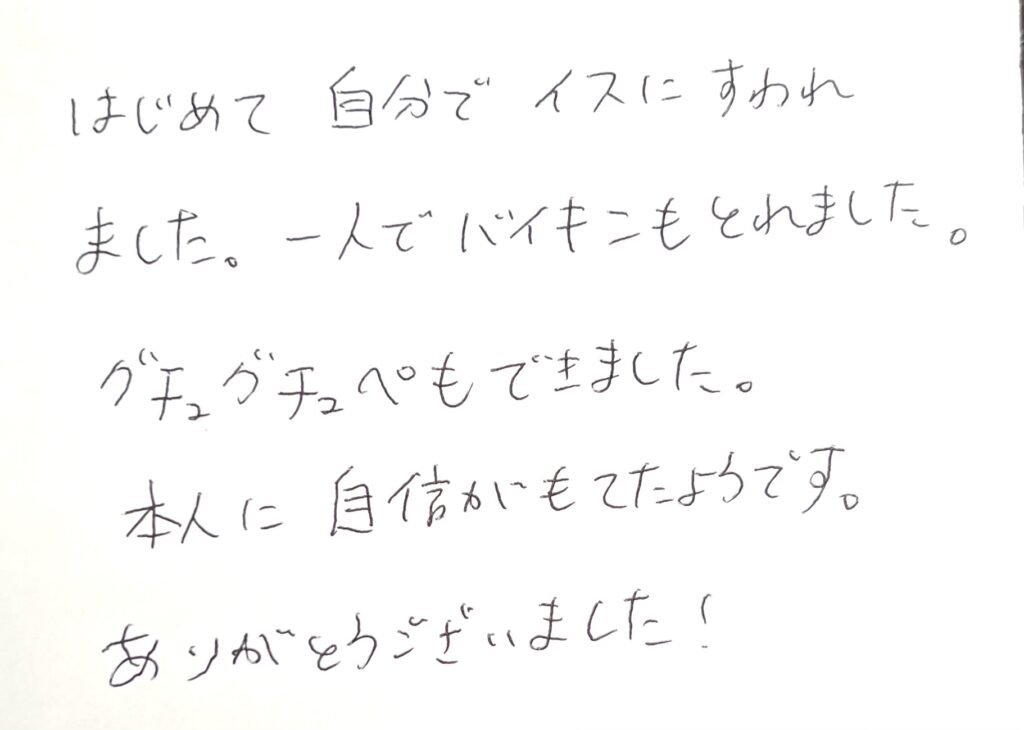 はじめて 自分で イスに すわれ
ました。一人で バイキンもとれました。
グチュグチュペもできました。
本人に 自信がもてたようです。
ありがとうございました!